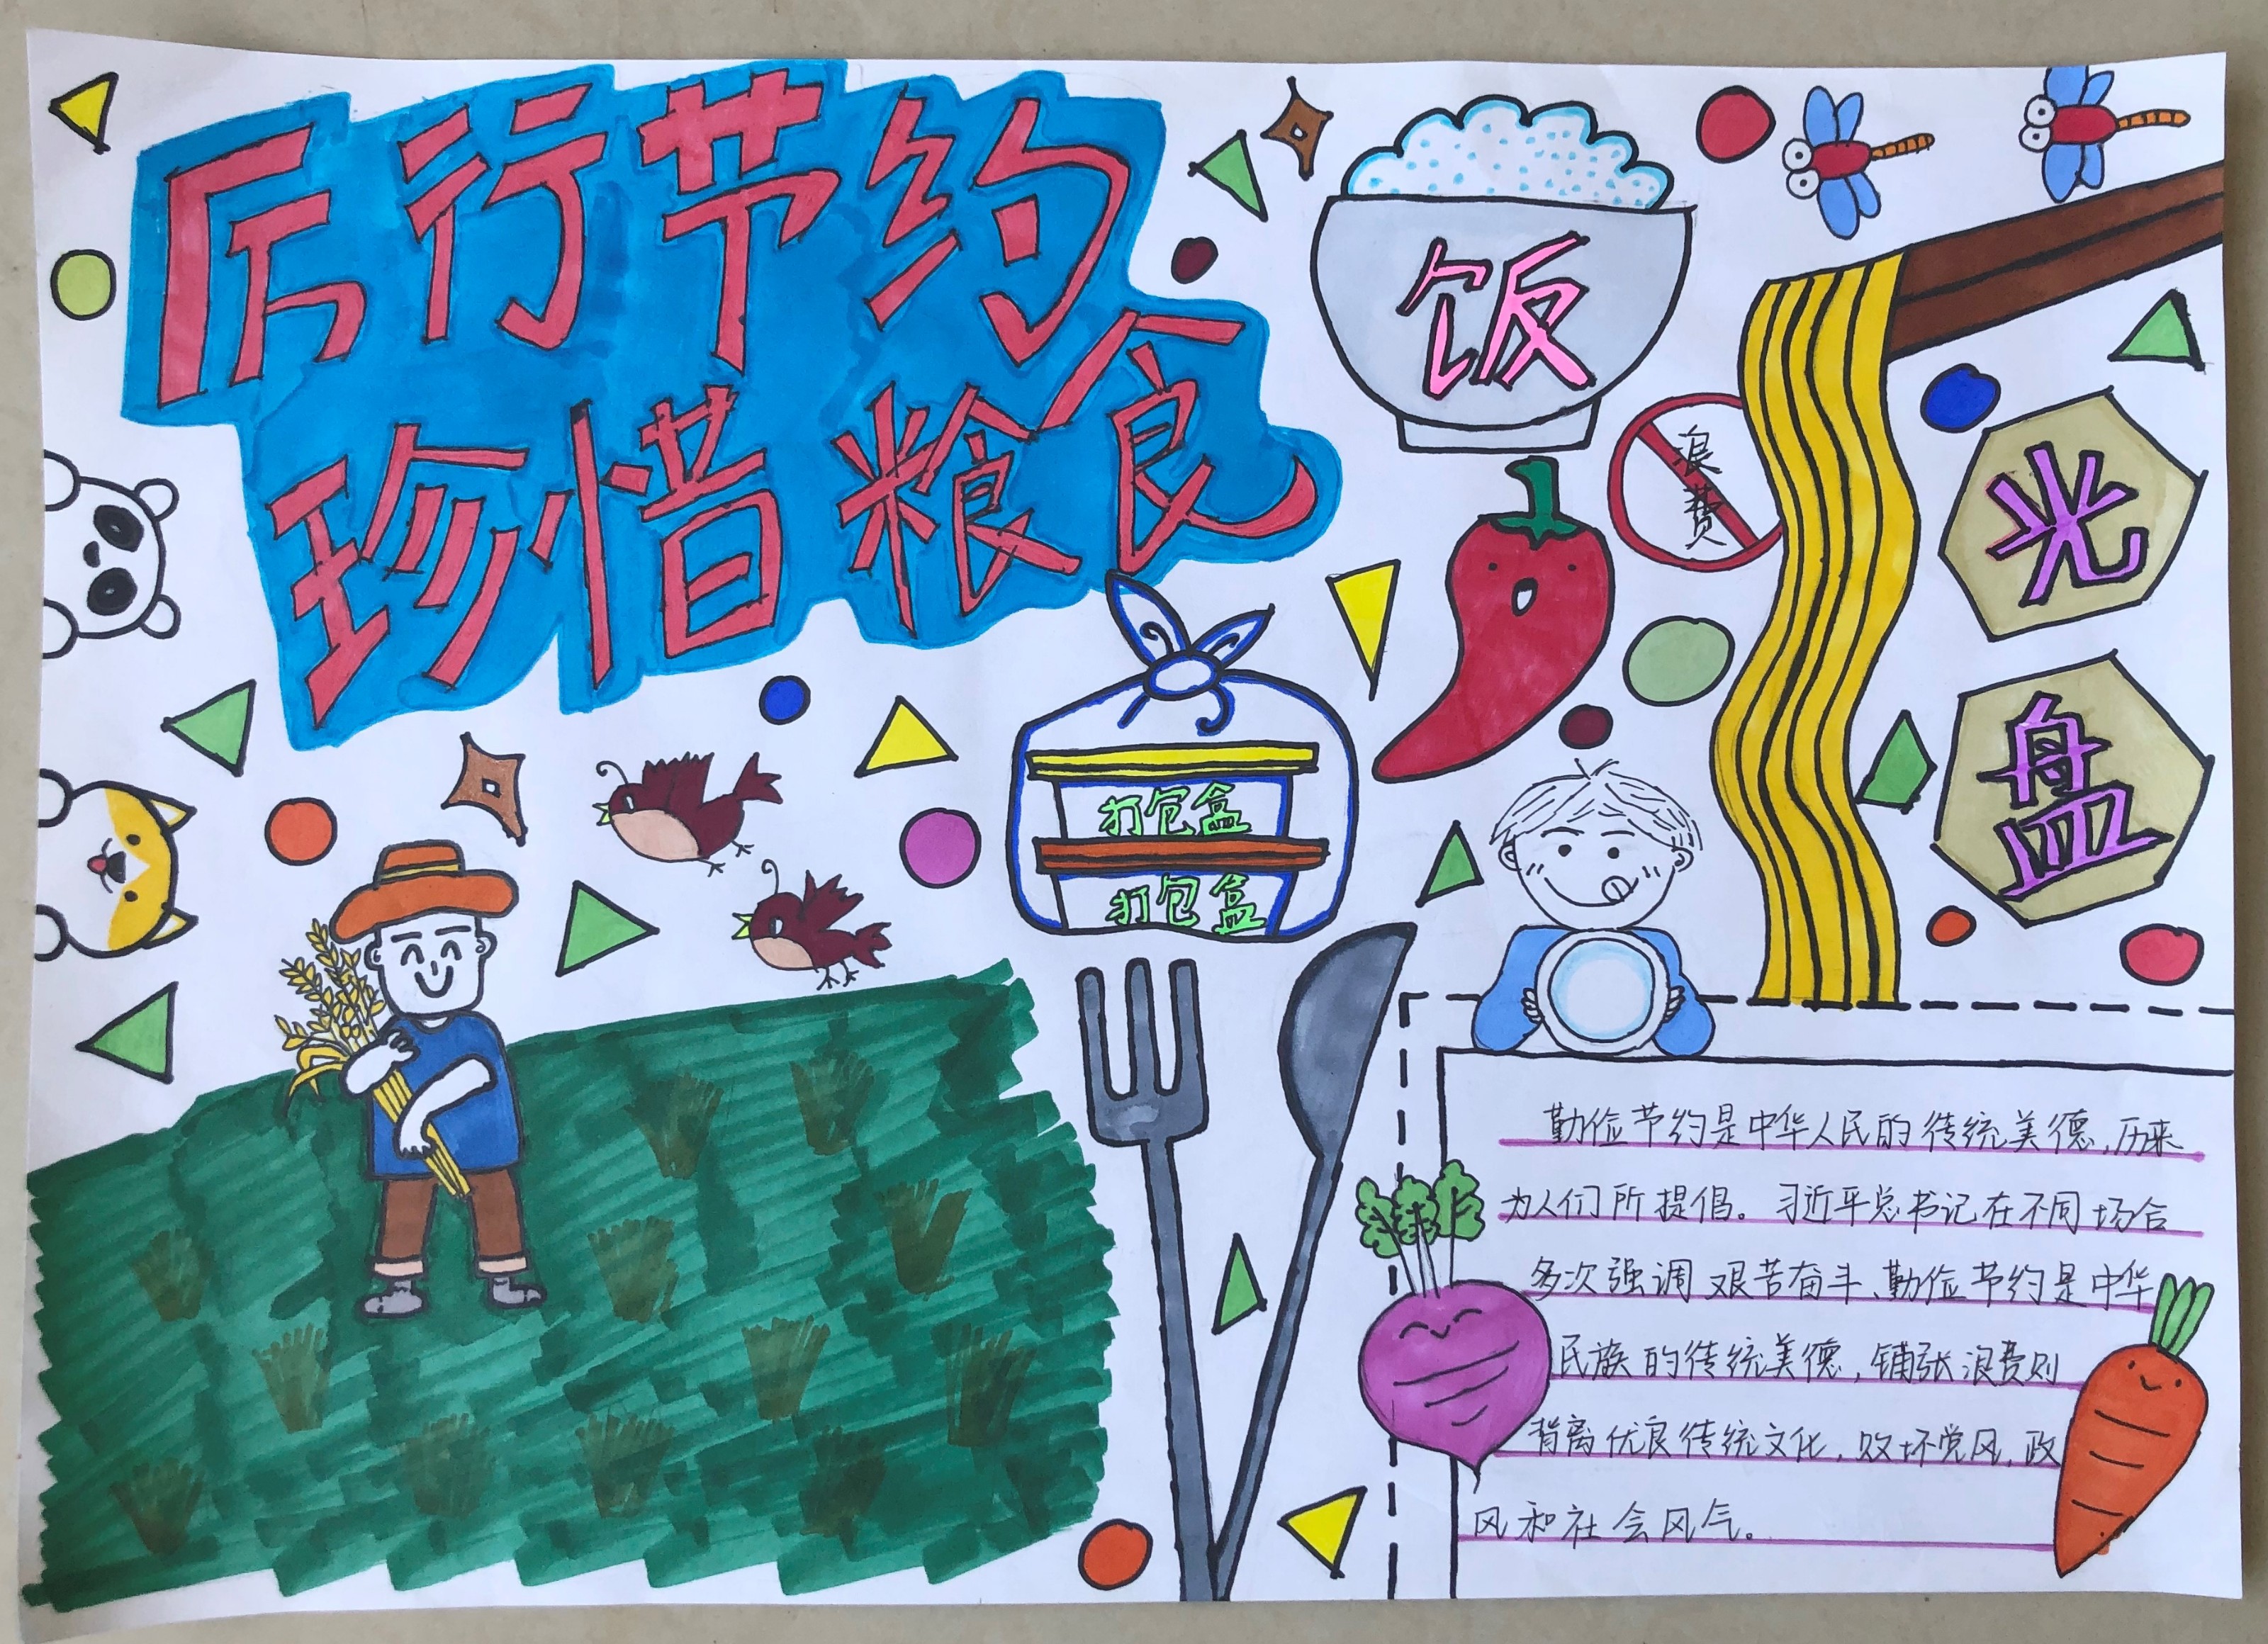 厉行节约
珍惜粮食
饭
浪费
光
盘
打包盒
打包盒
勤俭节约是中华人民的传统美德,历来
为人们所提倡。习近平总书记在不同场合
多次强调艰苦奋斗、勤俭节约是中华
民族的传统美德,铺张浪费则
背离优良传统文化,败坏党风,政
风和社会风气。